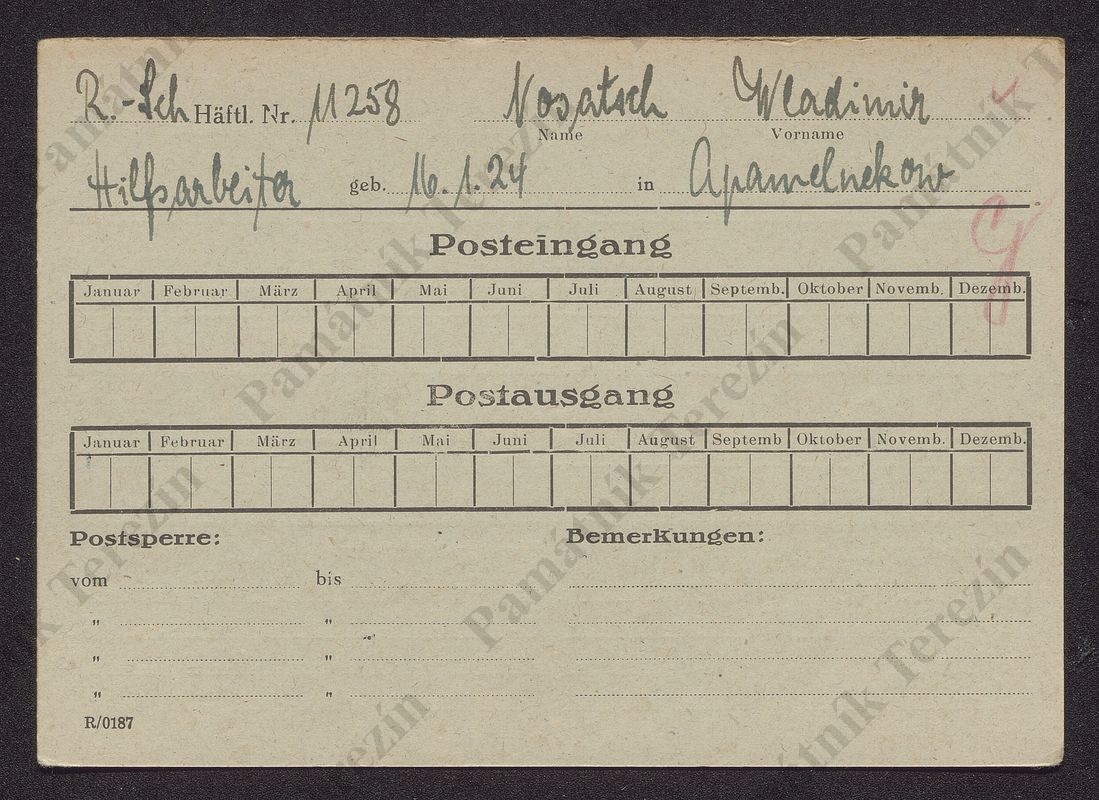 R.-Sch Häftl. Nr. 11258 Nosatsch Wladimir
Name Vorname
Hilfsarbeiter geb. 16.1.24 in Apamelnekow
Posteingang
Januar Februar März April Mai Juni Juli August Septemb. Oktober Novemb. Dezemb.
Postausgang
Januar Februar März April Mai Juni Juli August Septemb Oktober Novemb. Dezemb.
Postsperre: Bemerkungen:
vom bis
" "
" "
" "
R/0187
Památník Terezín